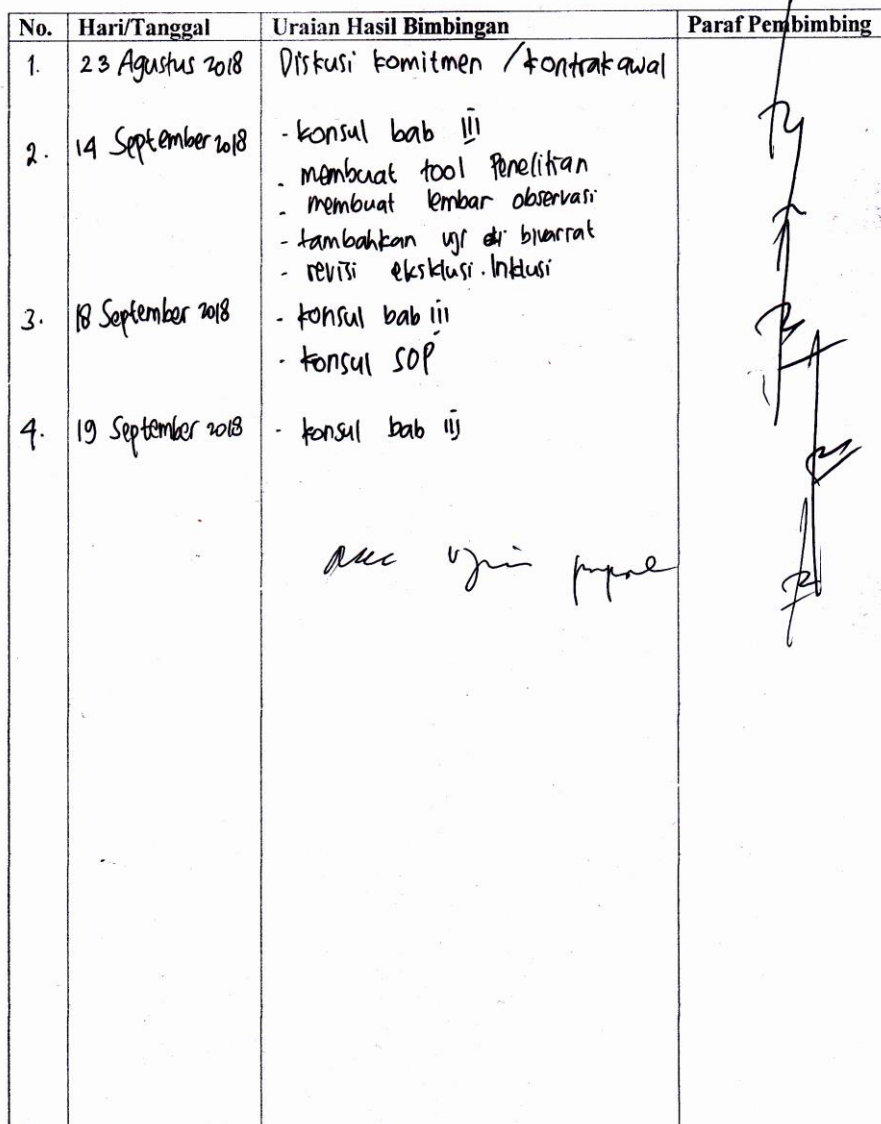 No. Hari/Tanggal Uraian Hasil Bimbingan Paraf Pembimbing
1. 23 Agustus 2018 Diskusi komitmen / kontrak awal
2. 14 September 2018 - konsul bab III
- membuat tool Penelitian
- membuat lembar observasi
- tambahkan uji di bivarrat
- revisi eksklusi. Inklusi
3. 18 September 2018 - konsul bab iii
- konsul SOP
4. 19 September 2018 - konsul bab iii
acc ujian